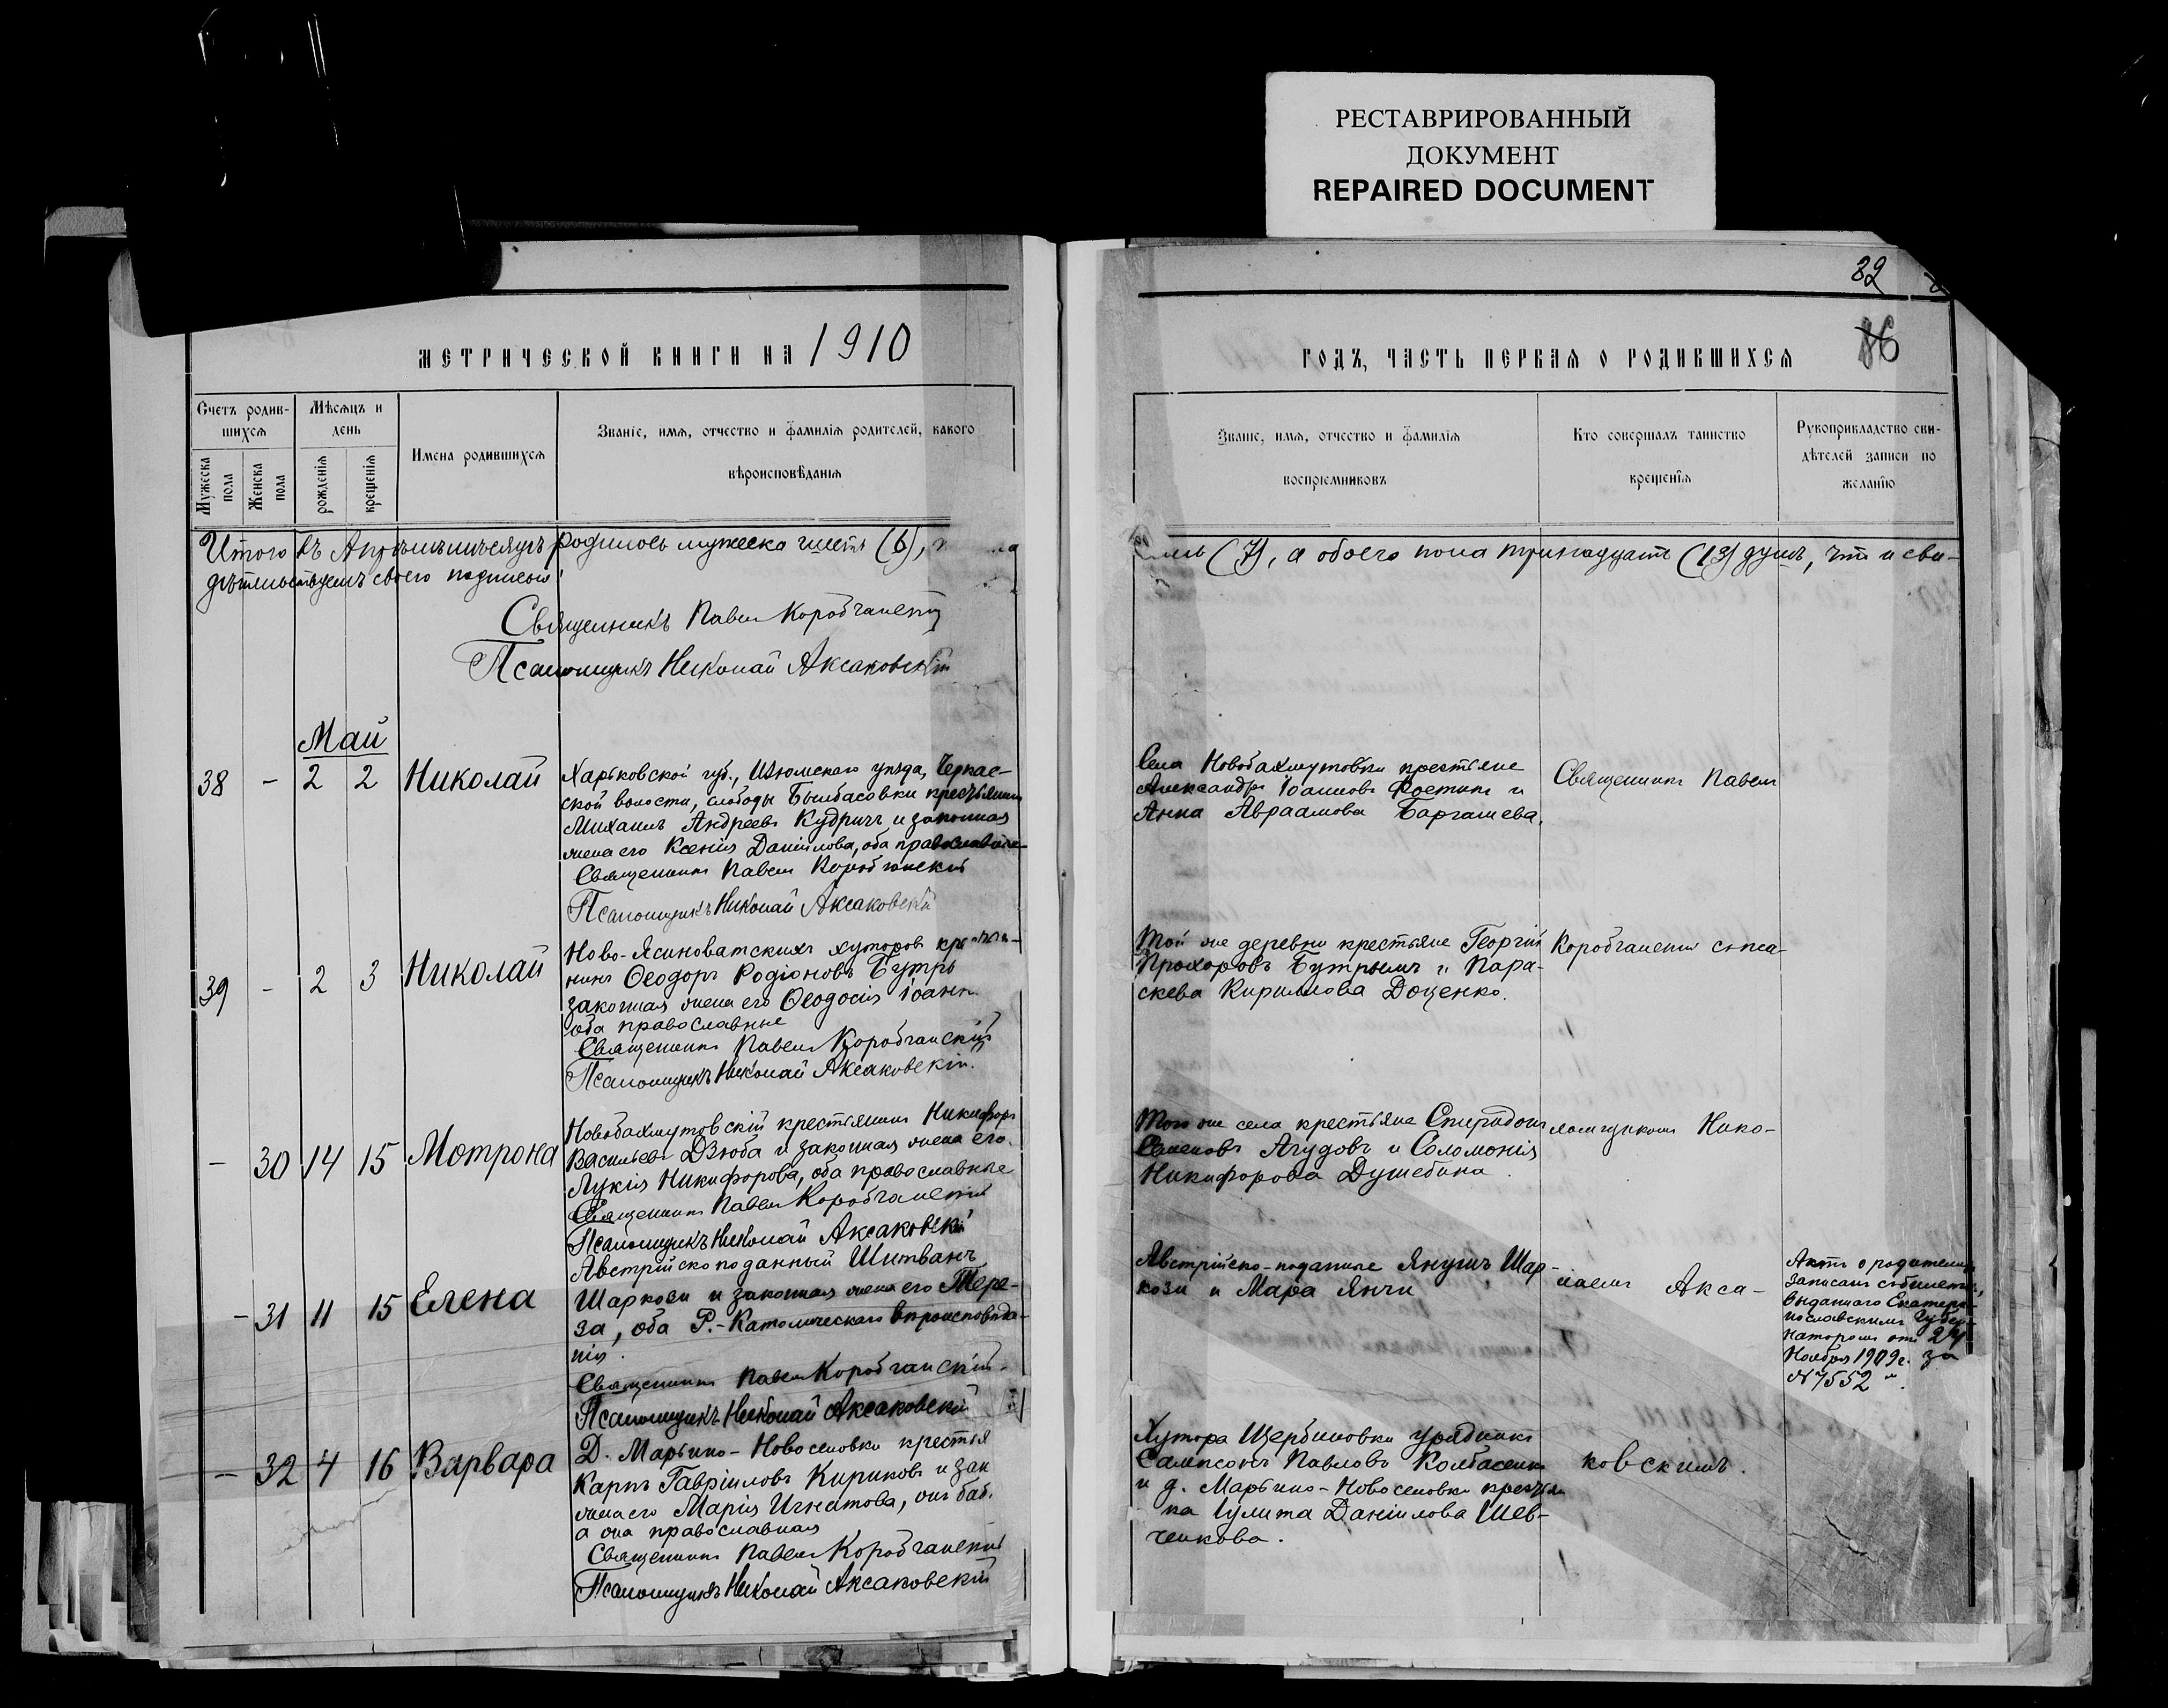 РЕСТАВРИРОВАННЫЙ
ДОКУМЕНТ
REPAIRED DOCUMENT
МЕТРИЧЕСКОЙ КНИГИ НА 1910
Счетъ родив-
шихся
Мужеска
пола
Женска
пола
Мѣсяцъ и
день
рожденія
крещенія
Имена родившихся
Званіе, имя, отчество и фамилія родителей, какого
вѣроисповѣданія
Итого въ Апрѣлѣ мѣсяцѣ родилось мужеска шесть (6),
дѣтельствуемъ своего подписью
Священникъ Павелъ Коробчанскій
Псаломщикъ Николай Аксаковскій
Май
38 - 2 2 Николай
Харьковской губ., Изюмскаго уѣзда, Черкас-
ской волости, слободы Былбасовки крестьянинъ
Михаилъ Андреевъ Кудричъ и законная
жена его Ксенія Даніилова, оба православные
Священникъ Павелъ Коробчанскій
Псаломщикъ Николай Аксаковскій
39 - 2 3 Николай
Ново-Ясиноватскихъ хуторовъ
нинъ Ѳеодоръ Родіоновъ
законная жена его Ѳеодосія Іоанн
оба православные
Священникъ Павелъ Коробчанскій
Псаломщикъ Николай Аксаковскій.
- 30 14 15 Мотрона
Новобахмутовскій крестьянинъ Никифоръ
Васильевъ Дзюба и законная жена его
Лукія Никифорова, оба православные
Священникъ Павелъ Коробчанскій
Псаломщикъ Николай Аксаковскій
- 31 11 15 Елена
Австрійско поданный Шитванъ
Шаркози и законная жена его Тере-
за, оба Р.-Католическаго вѣроисповѣда-
нія.
Священникъ Павелъ Коробчанскій.
Псаломщикъ Николай Аксаковскій
- 32 4 16 Варвара
Д. Марьино-Новоселовки крестья
Карпъ Гавріиловъ Кириковъ и зак
жена его Марія Игнатова, онъ
а она православная
Священникъ Павелъ Коробчанскій
Псаломщикъ Николай Аксаковскій
82
86
ГОДЪ, ЧАСТЬ ПЕРВАЯ О РОДИВШИХСЯ
Званіе, имя, отчество и фамилія
воспріемниковъ
Кто совершалъ таинство
крещенія
Рукоприкладство сви-
дѣтелей записи по
желанію
(7), а обоего пола тринадцать (13) душъ, что и сви-
Села Новобахмутовки крестьяне
Александръ Іоанновъ Фостикъ и
Анна Авраамова Баргашева.
Той же деревни крестьяне Георгій
Прохоровъ и Пара-
скева Кириллова Доценко.
Того же села крестьяне Спиридонъ
Семеновъ Агудовъ и Соломонія
Никифорова Душебина.
Австрійско-поданные Янушъ Шар-
кози и Мара Янчи
Хутора Щербиновки урядникъ
Сампсонъ Павловъ Колбасенко
и д. Марьино-Новоселовки крестьян
ка Іулита Даніилова Шев-
ченкова.
Священникъ Павелъ
Коробчанскій съ пса-
ломщикомъ Нико-
лаемъ Акса-
ковскимъ.
Актъ о родителяхъ
записанъ съ билета,
выданнаго Екатери-
нославскимъ Губер-
наторомъ отъ 24
Ноября 1909 г. за
№ 7552.